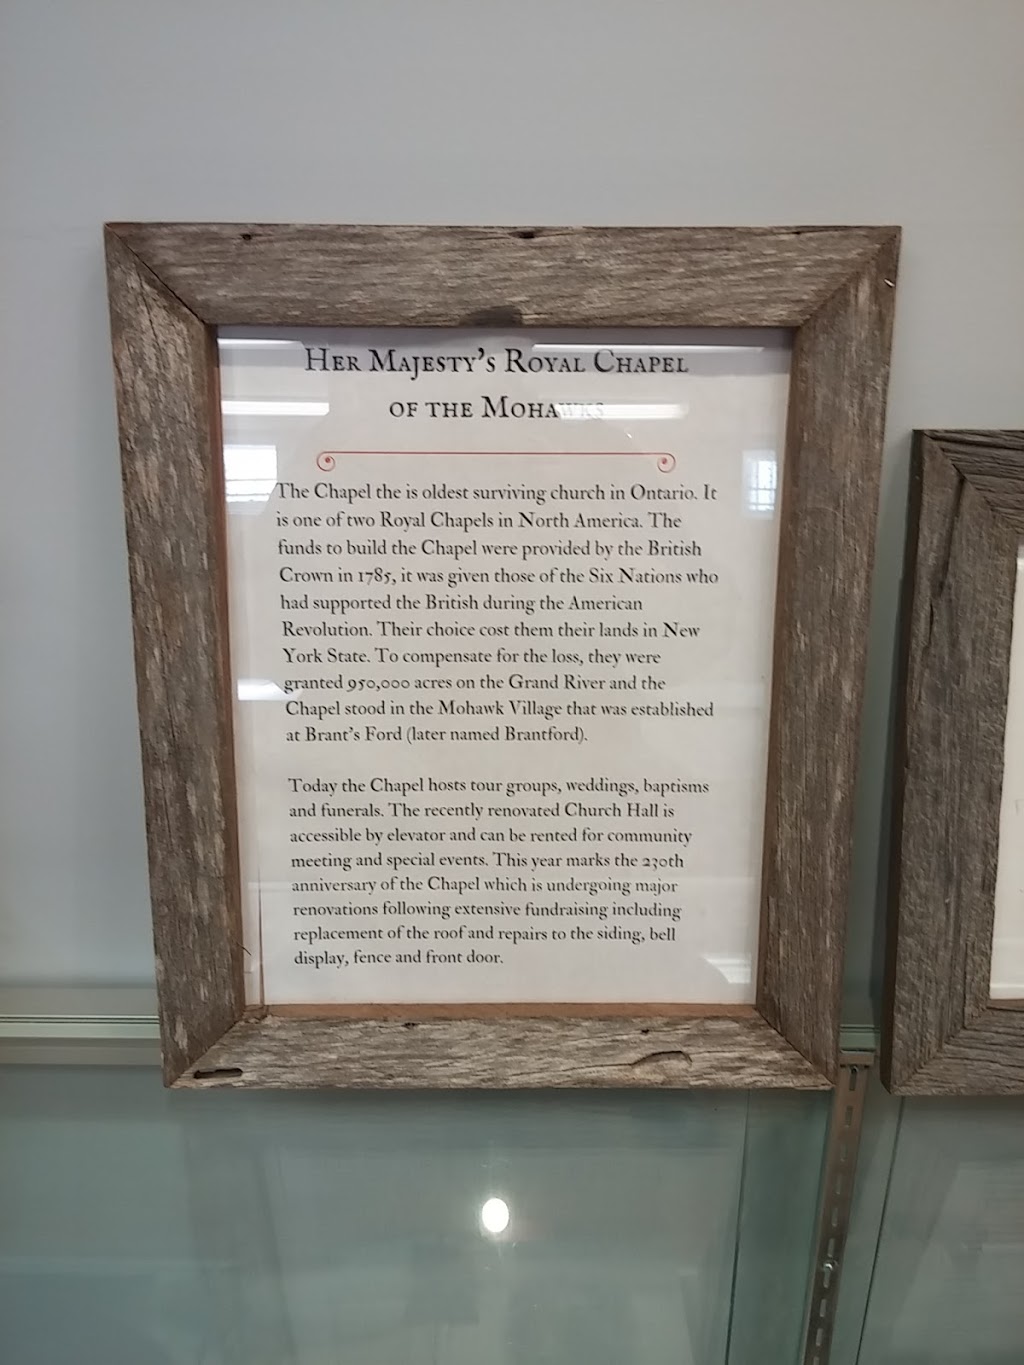 Her Majesty's Royal Chapel
of the Mohawks
The Chapel the is oldest surviving church in Ontario. It
is one of two Royal Chapels in North America. The
funds to build the Chapel were provided by the British
Crown in 1785, it was given those of the Six Nations who
had supported the British during the American
Revolution. Their choice cost them their lands in New
York State. To compensate for the loss, they were
granted 950,000 acres on the Grand River and the
Chapel stood in the Mohawk Village that was established
at Brant's Ford (later named Brantford).
Today the Chapel hosts tour groups, weddings, baptisms
and funerals. The recently renovated Church Hall is
accessible by elevator and can be rented for community
meeting and special events. This year marks the 230th
anniversary of the Chapel which is undergoing major
renovations following extensive fundraising including
replacement of the roof and repairs to the siding, bell
display, fence and front door.